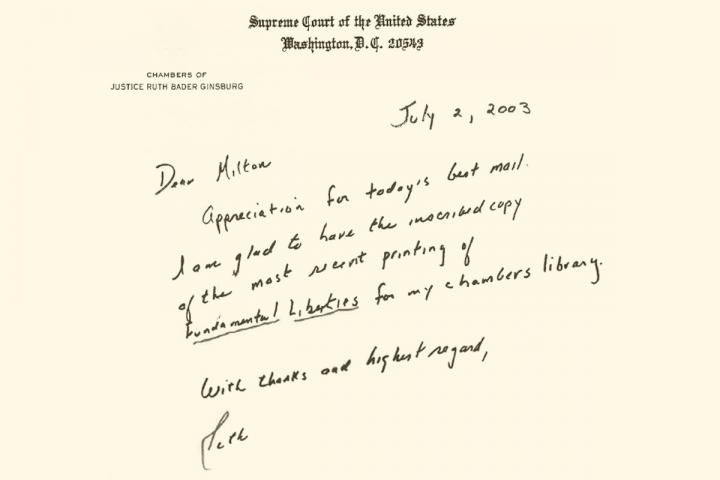 Supreme Court of the United States
Washington, D.C. 20543
CHAMBERS OF
JUSTICE RUTH BADER GINSBURG
July 2, 2003
Dear Milton
Appreciation for today's best mail.
I am glad to have the inscribed copy
of the most recent printing of
Fundamental Liberties for my chambers library.
With thanks and highest regard,
Ruth